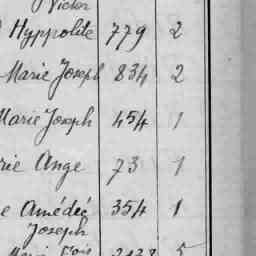 Victor
Hyppolite 779 2
Marie Joseph 834 2
Marie Joseph 454 1
rie Ange 73 1
e Amédée 354 1
Joseph